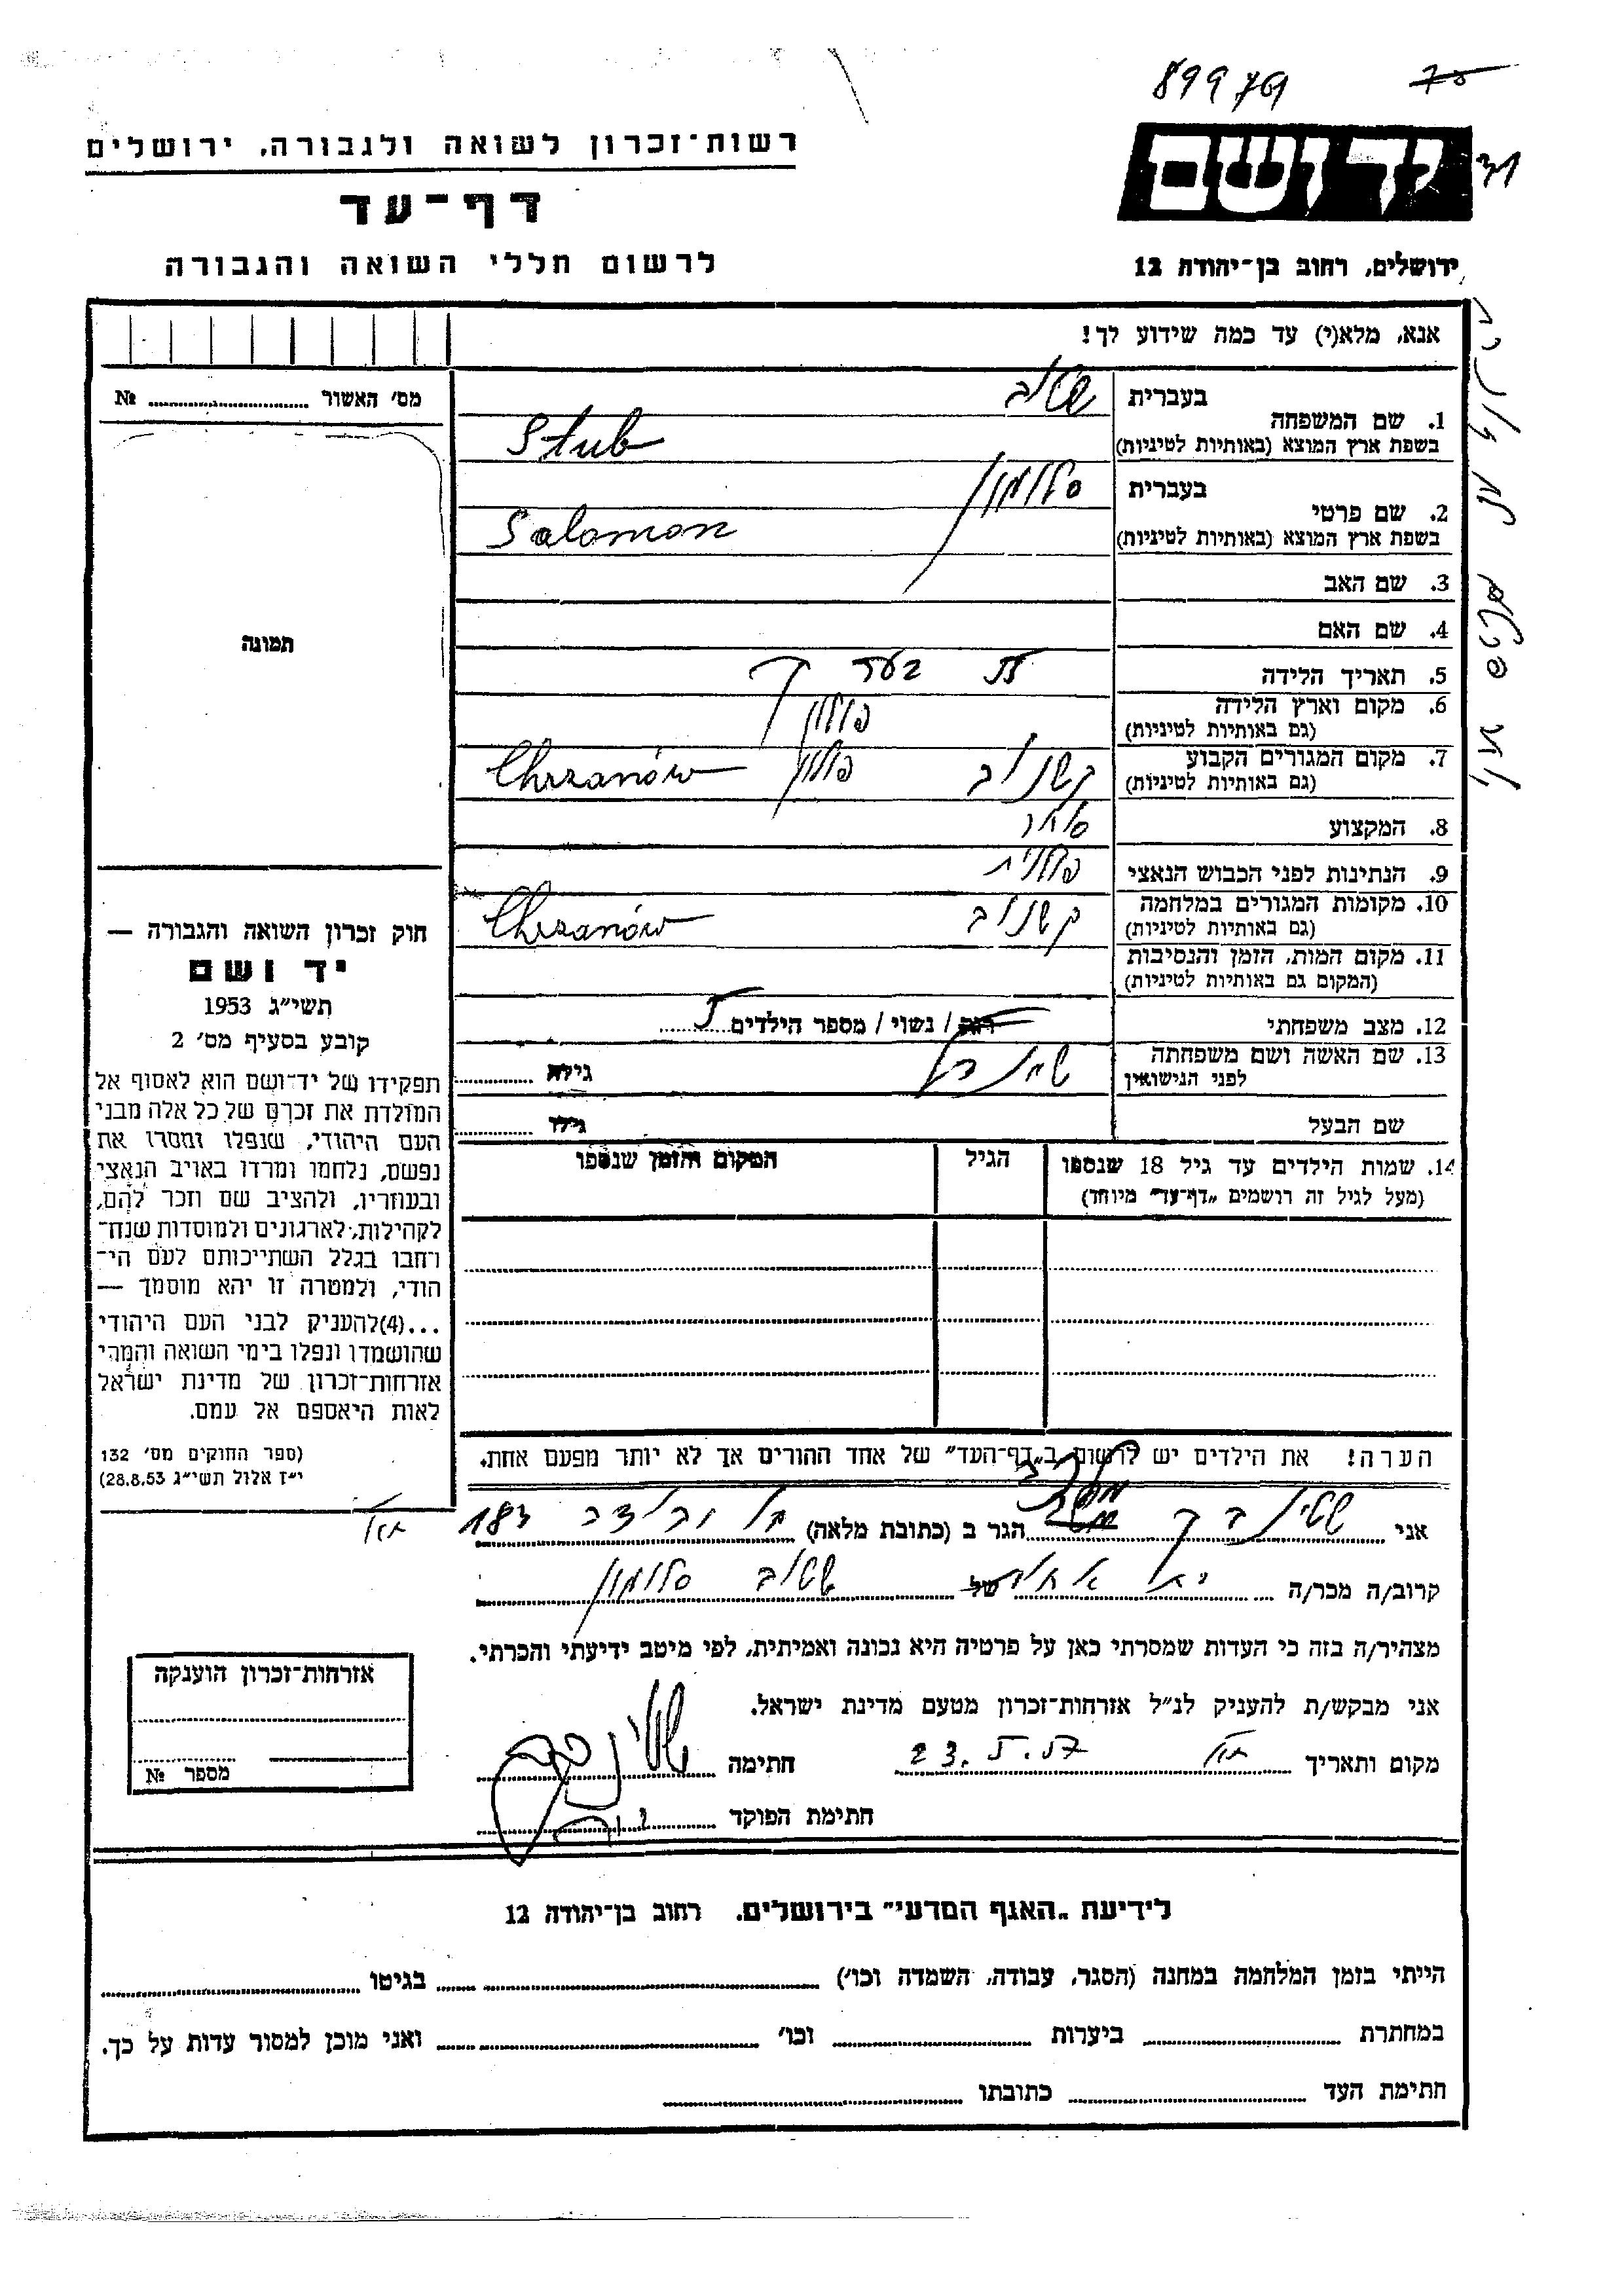 89979
רשות־זכרון לשואה ולגבורה, ירושלים
דף־עד
לרשום חללי השואה והגבורה
ידושם
ירושלים, רחוב בן־יהודה 12
אנא, מלא(י) עד כמה שידוע לך!
מס׳ האשור № 
תמונה
חוק זכרון השואה והגבורה —
יד ושם
תשי״ג 1953
קובע בסעיף מס׳ 2
תפקידו של יד־ושם הוא לאסוף אל
המולדת את זכרם של כל אלה מבני
העם היהודי, שנפלו ומסרו את
נפשם, נלחמו ומרדו באויב הנאצי
ובעוזריו, ולהציב שם וזכר להם,
לקהילות, לארגונים ולמוסדות שנח־
רחבו בגלל השתייכותם לעם הי־
הודי, ולמטרה זו יהא מוסמך —
...(4)להעניק לבני העם היהודי
שהושמדו ונפלו בימי השואה והמרי
אזרחות־זכרון של מדינת ישראל
לאות היאספם אל עמם.
(ספר החוקים מס׳ 132
י״ז אלול תשי״ג 28.8.53)
1. שם המשפחה בעברית שטוב
בשפת ארץ המוצא (באותיות לטיניות) Stub
2. שם פרטי בעברית סלומון
בשפת ארץ המוצא (באותיות לטיניות) Salomon
3. שם האב
4. שם האם
5. תאריך הלידה
6. מקום וארץ הלידה (גם באותיות לטיניות) פולין
7. מקום המגורים הקבוע (גם באותיות לטיניות) קשנוב פולין Chrzanów
8. המקצוע סוחר
9. הנתינות לפני הכבוש הנאצי פולנית
10. מקומות המגורים במלחמה (גם באותיות לטיניות) קשנוב Chrzanów
11. מקום המות, הזמן והנסיבות (המקום גם באותיות לטיניות)
12. מצב משפחתי רוק / נשוי / מספר הילדים
13. שם האשה ושם משפחתה לפני הנישואין גילה
שם הבעל גילו
14. שמות הילדים עד גיל 18 שנספו (מעל לגיל זה רושמים „דף־עד״ מיוחד) הגיל המקום והזמן שנספו
הערה! את הילדים יש לרשום ב„דף־העד״ של אחד ההורים אך לא יותר מפעם אחת.
אני הגר ב (כתובת מלאה) בן יהודה 187 תא
קרוב/ה מכר/ה של שטוב סלומון
מצהיר/ה בזה כי העדות שמסרתי כאן על פרטיה היא נכונה ואמיתית, לפי מיטב ידיעתי והכרתי.
אני מבקש/ת להעניק לנ״ל אזרחות־זכרון מטעם מדינת ישראל.
מקום ותאריך תא חתימה
חתימת הפוקד
אזרחות־זכרון הוענקה
מספר №
לידיעת „האגף המדעי״ בירושלים. רחוב בן־יהודה 12
הייתי בזמן המלחמה במחנה (הסגר, עבודה, השמדה וכו׳) בגיטו
במחתרת ביערות וכו׳ ואני מוכן למסור עדות על כך.
חתימת העד כתובתו